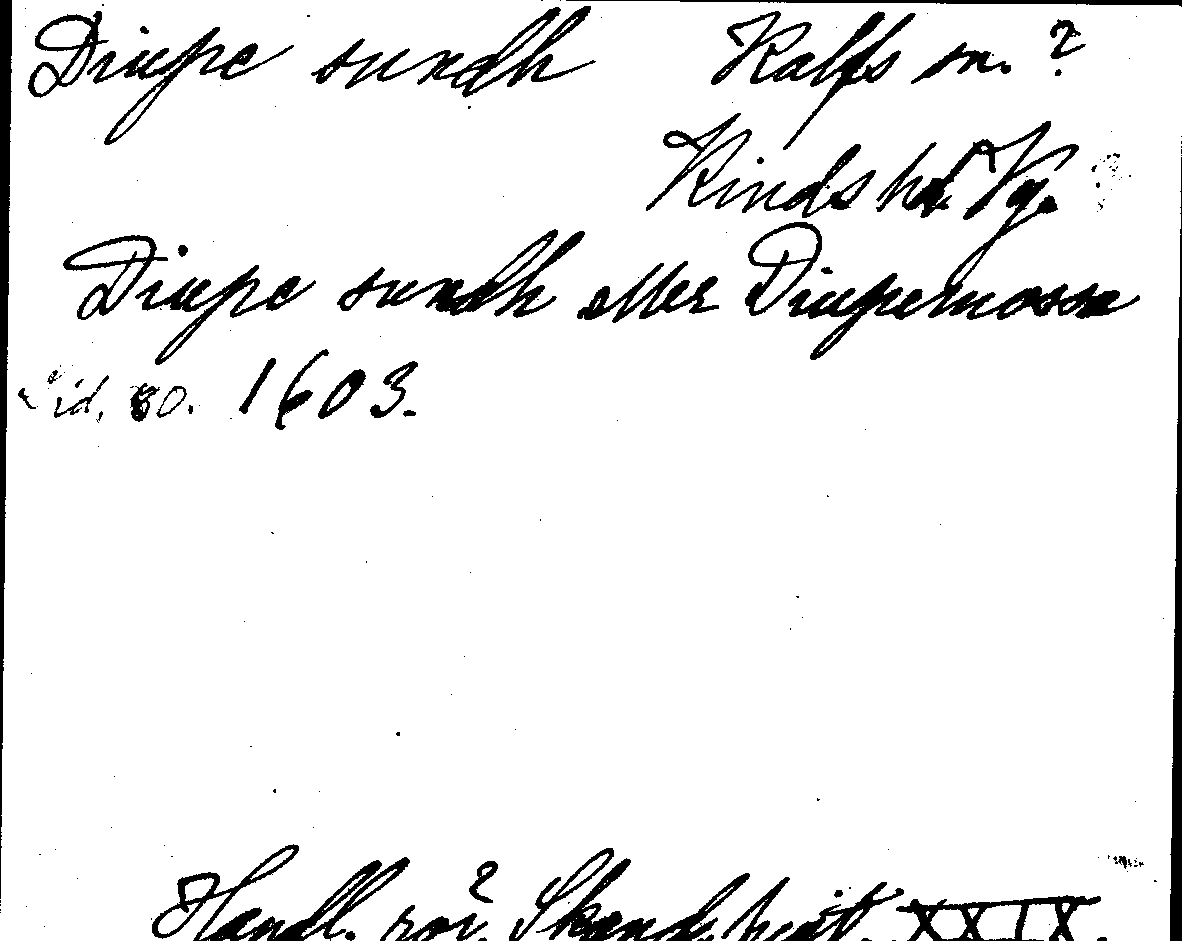 Diupe sundh Kalfs sn. ?
Kinds hd. Vg.
Diupe sundh eller Diupemosse
Sid. 80. 1603.
Handl. rör. Skand. hist. XXIX.